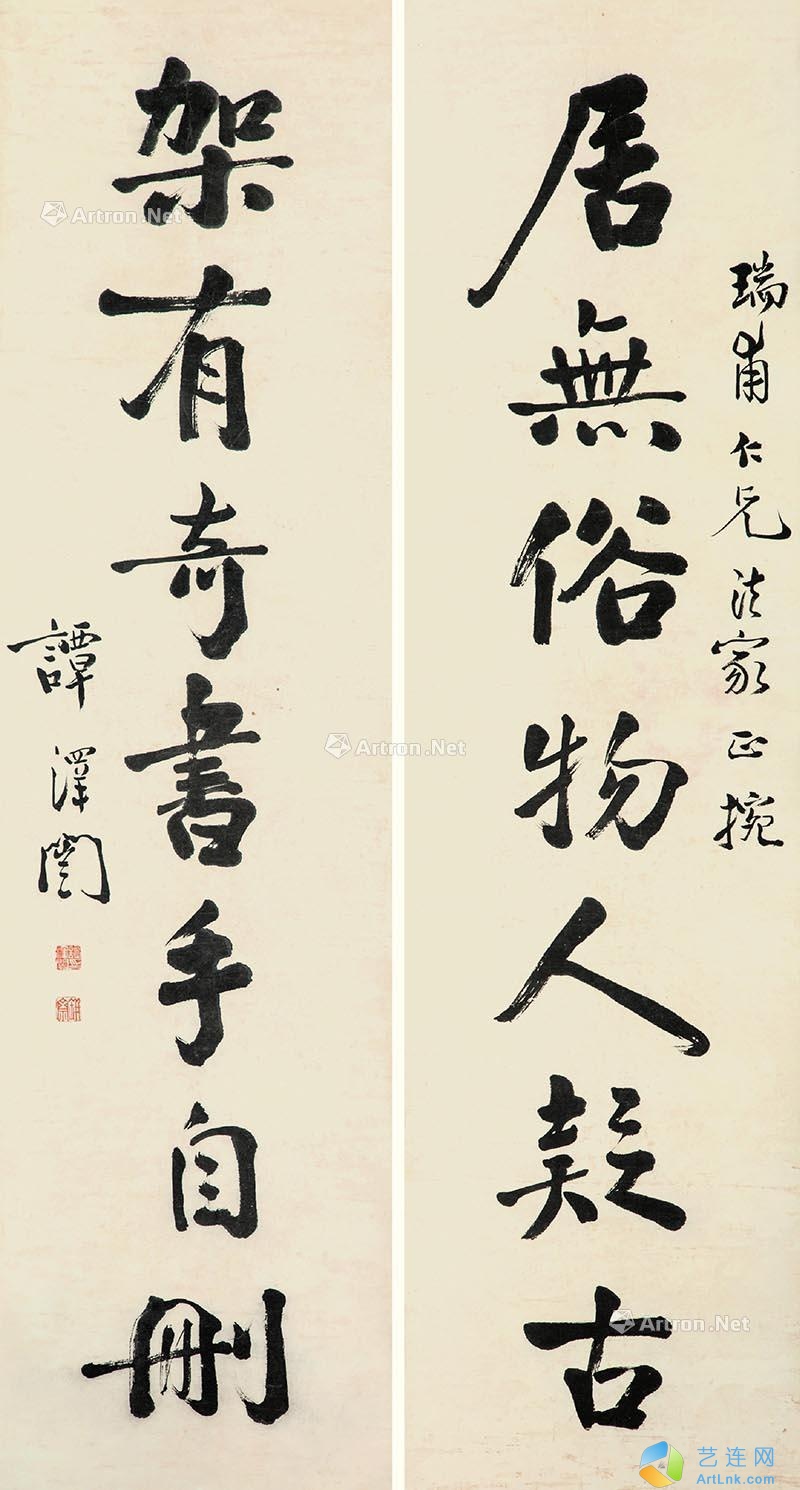 瑞甫仁兄法家正捥
居無俗物人疑古
架有奇書手自刪
譚澤闓
Artron.Net
Artron.Net
Artron.Net
艺连网
ArtLnk.com